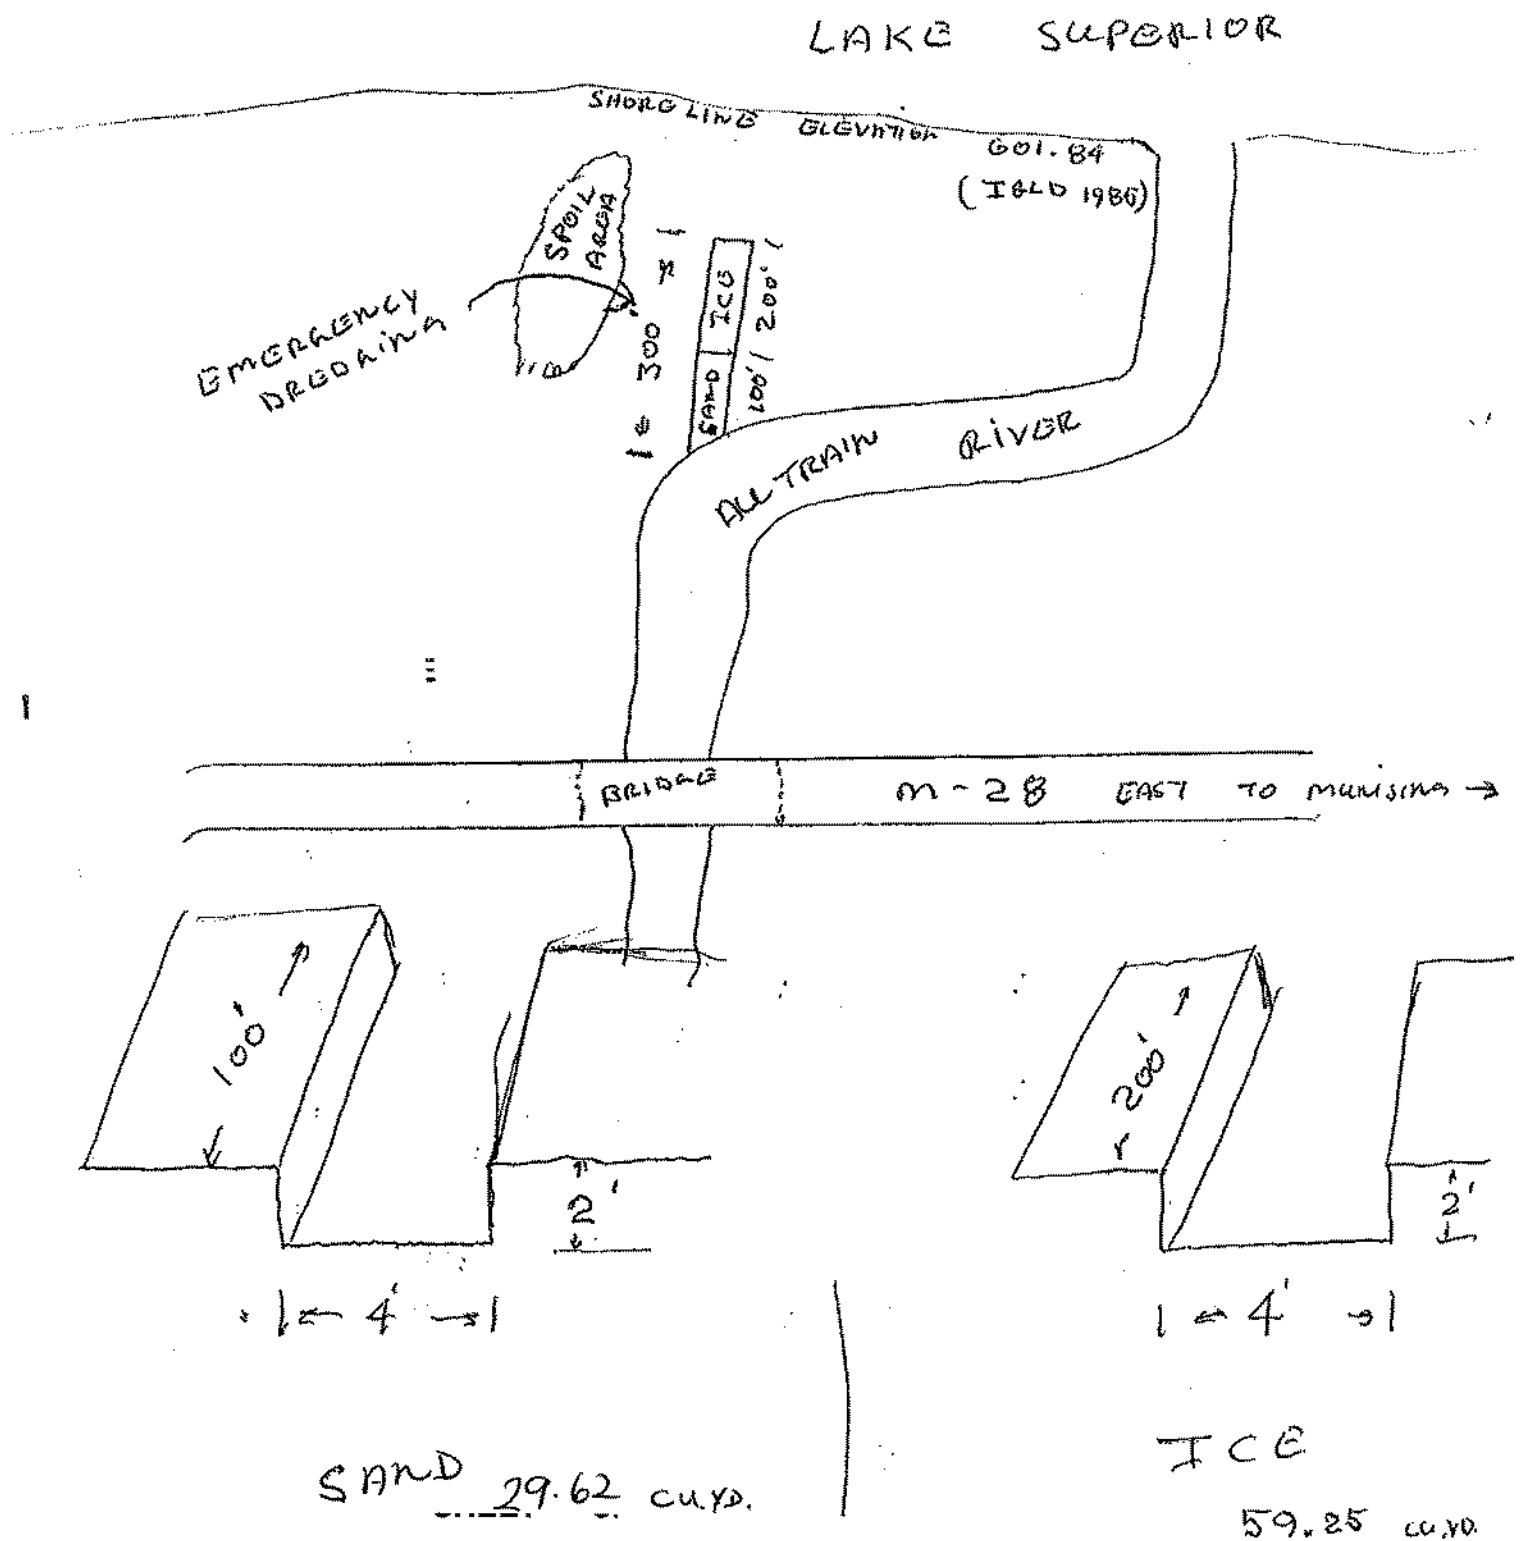 LAKE SUPERIOR
SHORE LINE ELEVATION
601.84
(IGLD 1985)
SPOIL
AREA
EMERGENCY
DREDGING
300
SAND | ICE
100' / 200'
ALL TRAIN RIVER
BRIDGE
M-28 EAST TO MUNISING →
100'
2'
4'
200'
2'
4'
SAND
29.62 CU.YD.
ICE
59.25 CU.YD.